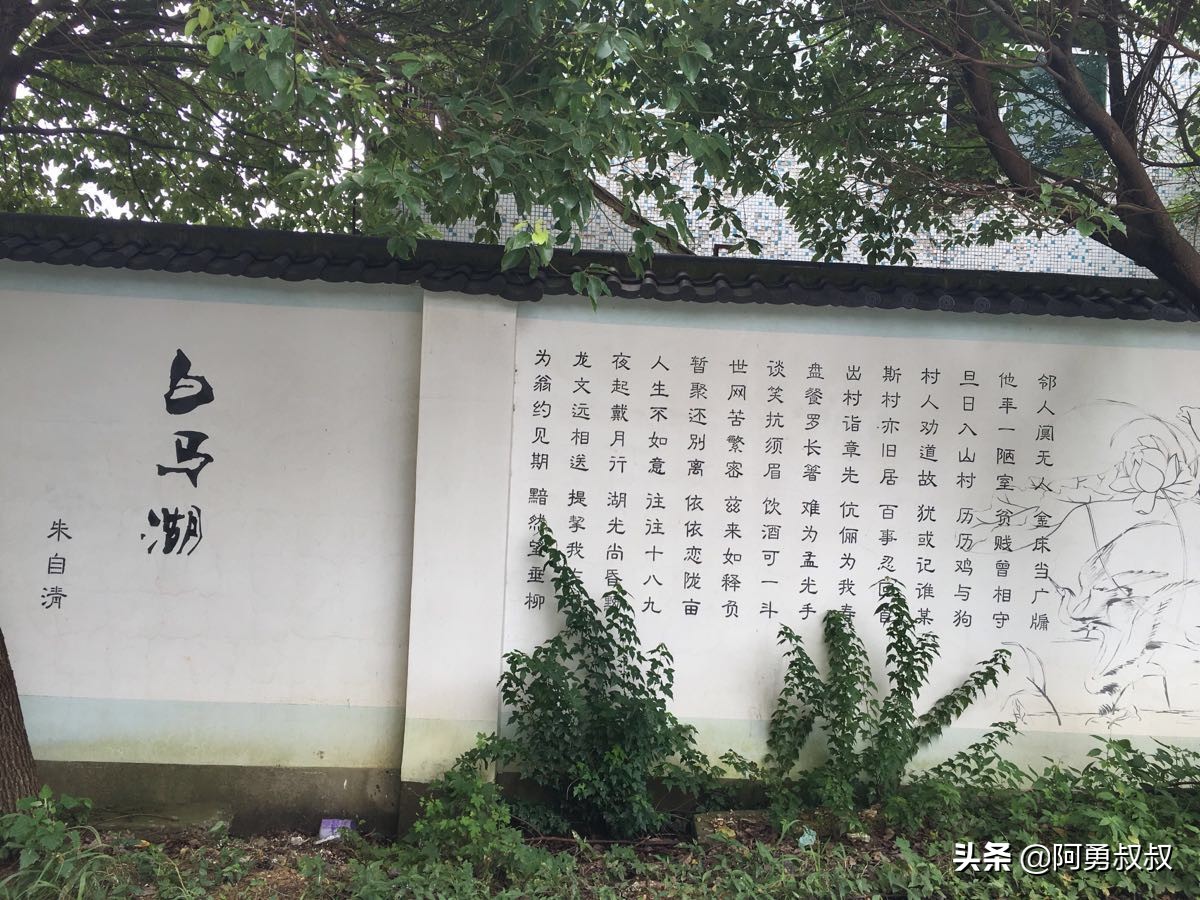 邻人阒无人 金床当广牖
他年一陋室 贫贱曾相守
旦日入山村 历历鸡与狗
村人劝道故 犹或记谁某
斯村亦旧居 百事忍回首
出村诣章先 伉俪为我寿
盘餐罗长箸 难为孟光手
谈笑抗须眉 饮酒可一斗
世网苦繁密 兹来如释负
暂聚还别离 依依恋陇亩
人生不如意 往往十八九
夜起戴月行 湖光尚昏
龙文远相送 提挈我
为翁约见期 黯然望垂柳
白马湖
朱自清
头条 @阿勇叔叔